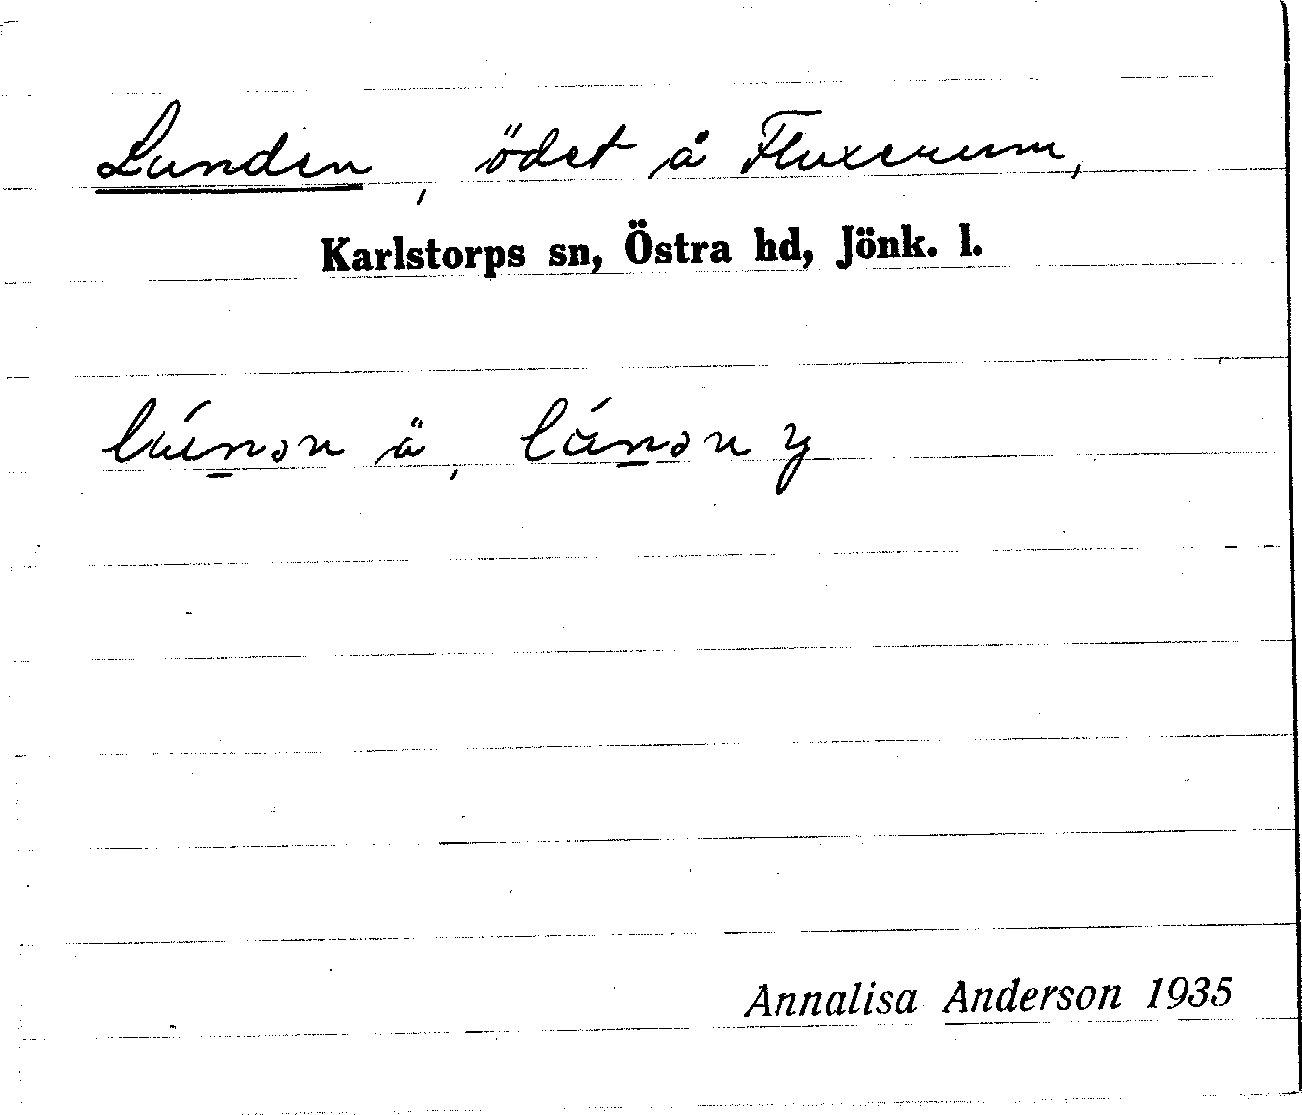 Lunden, ödet å Fluxerum,
Karlstorps sn, Östra hd, Jönk. l.
lúnən ä, lánən y
Annalisa Anderson 1935